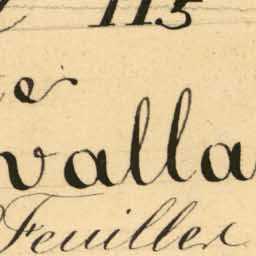 115
e
valla
Feuillen